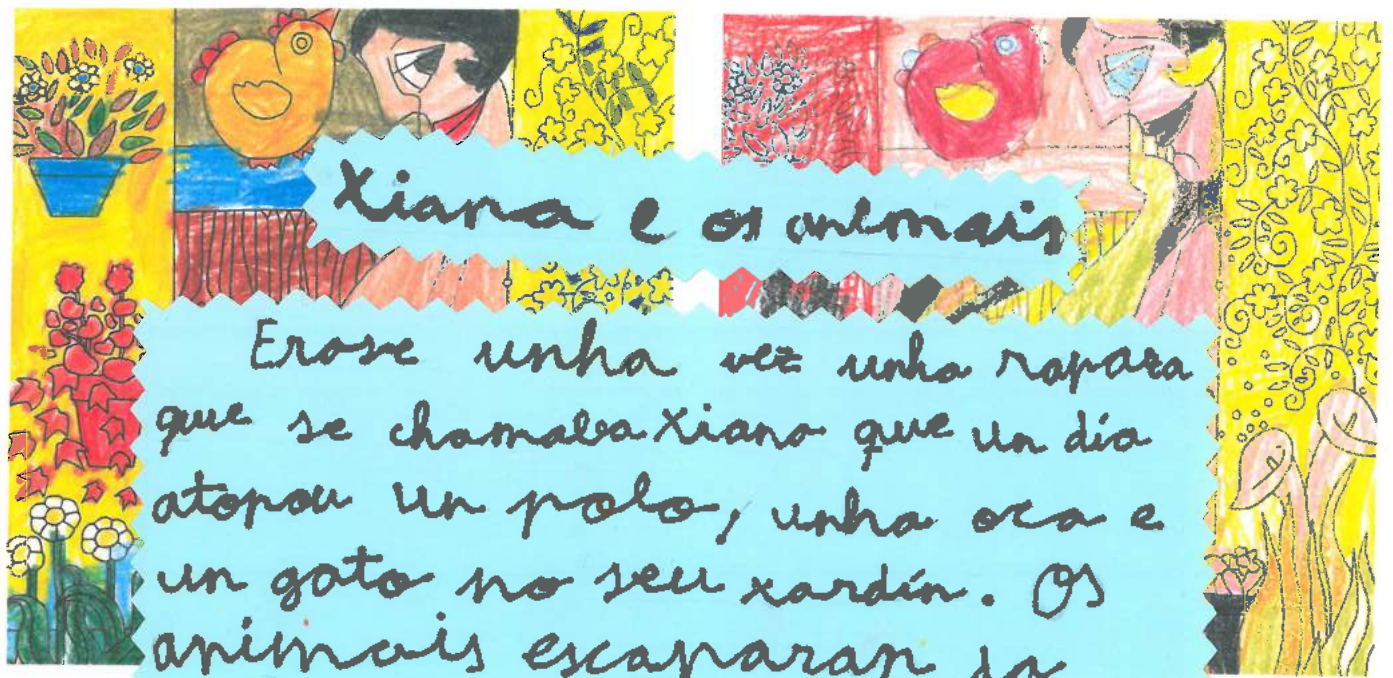 Xiana e os animais
Erase unha vez unha rapaza
que se chamaba Xiana que un día
atopou un polo, unha oca e
un gato no seu xardín. Os
animais escaparan da